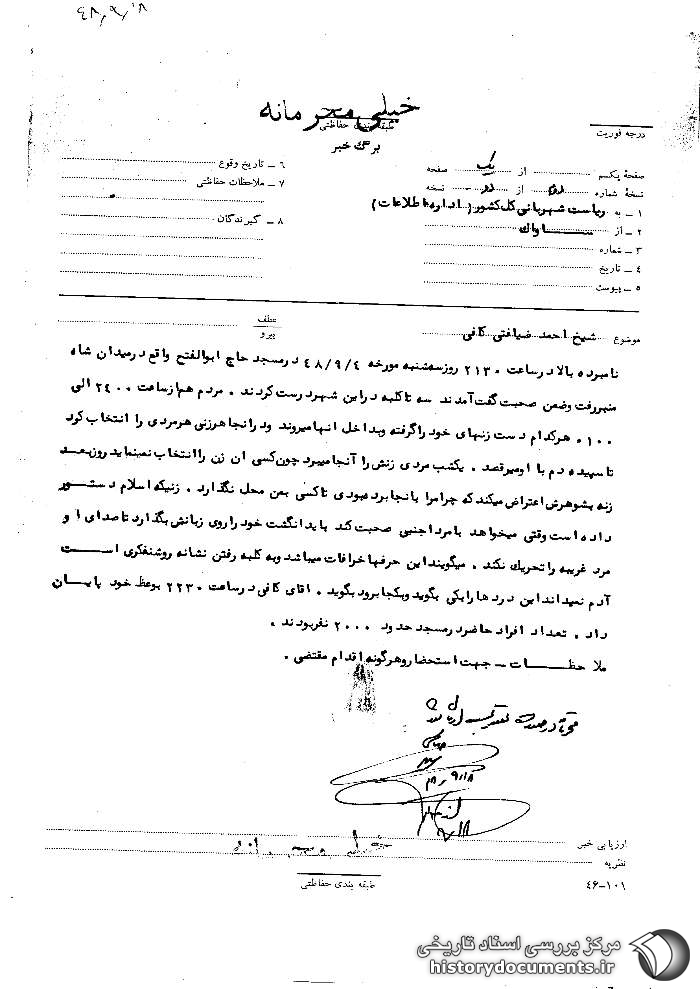 ۴۸/۹/۱۸
خیلی محرمانه
طبقه بندی حفاظتی
درجه فوریت
برگ خبر
صفحه یکم از یک صفحه
نسخه شماره از نسخه
۱ ـ به ریاست شهربانی کل کشور (اداره اطلاعات)
۲ ـ از ساواک
۳ ـ شماره
۴ ـ تاریخ
۵ ـ پیوست
۶ ـ تاریخ وقوع
۷ ـ ملاحظات حفاظتی
۸ ـ گیرندگان
عطف
پیرو
موضوع شیخ احمد ضیافتی کافی
نامبرده بالا در ساعت ۲۱۳۰ روز سه‌شنبه مورخه ۴۸/۹/۴ در مسجد حاج ابوالفتح واقع در میدان شاه
منبر رفت و ضمن صحبت گفت آمدند سه تا کلبه در این شهر درست کردند . مردم هم از ساعت ۲۴۰۰ الی
۰۱۰۰ هر کدام دست زنهای خود را گرفته و بداخل انها میروند و در انجا هر زنی هر مردی را انتخاب کرد
تا سپیده دم با او میرقصد . یکشب مردی زنش را آنجا میبرد چون کسی ان زن را انتخاب نمینماید روز بعد
زنه بشوهرش اعتراض میکند که چرا مرا بانجا برده بودی تا کسی بمن محل نگذارد . زنیکه اسلام دستور
داده است وقتی میخواهد با مرد اجنبی صحبت کند باید انگشت خود را روی زبانش بگذارد تا صدای او
مرد غریبه را تحریک نکند . میگویند این حرفها خرافات میباشد و به کلبه رفتن نشانه روشنفکری است
آدم نمیداند این درد ها را بکی بگوید و بکجا برود بگوید . اقای کافی در ساعت ۲۲۳۰ بوعظ خود پایان
داد . تعداد افراد حاضر در مسجد حدود ۲۰۰۰ نفر بودند .
ملاحظات ـ جهت استحضار و هرگونه اقدام مقتضی .
۴۸/۹/۱۸
ارزیابی خبر
نظریه
خیلی محرمانه
طبقه بندی حفاظتی
۴۶-۱۰۱
مرکز بررسی اسناد تاریخی
historydocuments.ir